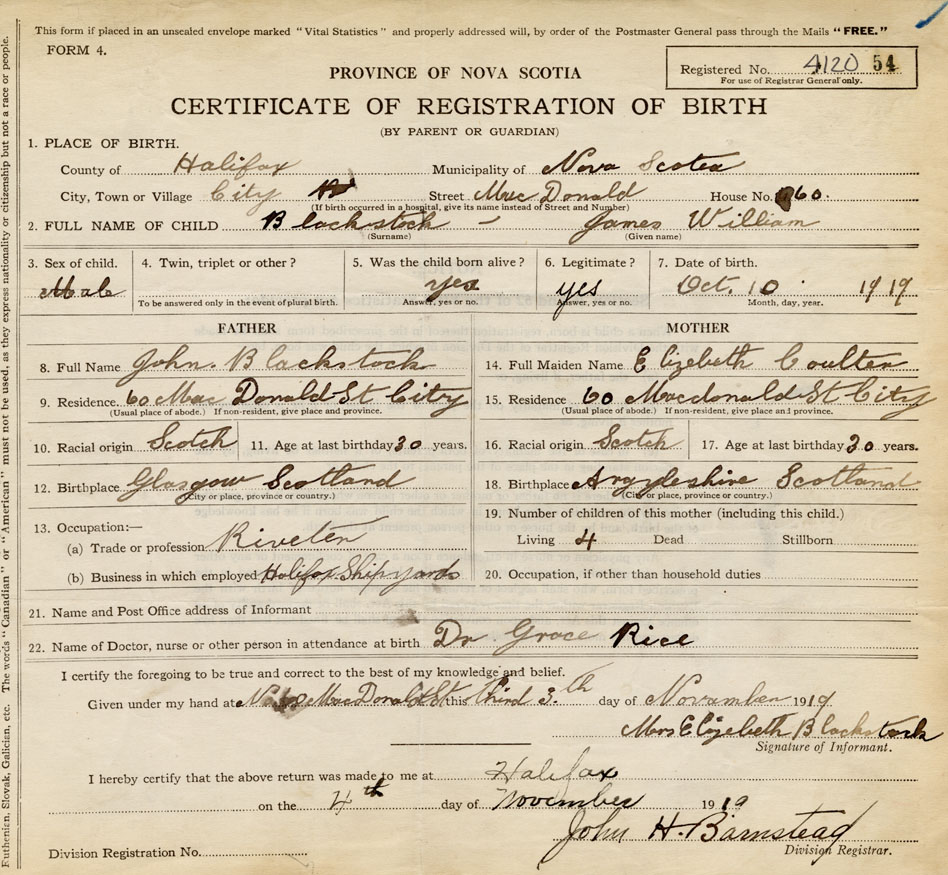 This form if placed in an unsealed envelope marked "Vital Statistics" and properly addressed will, by order of the Postmaster General pass through the Mails "FREE."
FORM 4.
Registered No. 4120 54
For use of Registrar General only.
PROVINCE OF NOVA SCOTIA
CERTIFICATE OF REGISTRATION OF BIRTH
(BY PARENT OR GUARDIAN)
1. PLACE OF BIRTH.
County of Halifax Municipality of Nova Scotea
City, Town or Village City Street Mac Donald House No. 60.
(If birth occurred in a hospital, give its name instead of Street and Number)
2. FULL NAME OF CHILD Blackstock - James William
(Surname) (Given name)
3. Sex of child. 4. Twin, triplet or other? 5. Was the child born alive? 6. Legitimate? 7. Date of birth.
Male yes yes Oct. 10 1919
To be answered only in the event of plural birth. Answer, yes or no. Answer, yes or no. Month, day, year.
FATHER MOTHER
8. Full Name John. Blackstock 14. Full Maiden Name Elizebeth Coulter
9. Residence 60 Mac Donald St City 15. Residence 60 Macdonald St City
(Usual place of abode.) If non-resident, give place and province. (Usual place of abode.) If non-resident, give place and province.
10. Racial origin Scotch 11. Age at last birthday 30 years. 16. Racial origin Scotch 17. Age at last birthday 30 years.
12. Birthplace Glasgow Scotland 18. Birthplace Argyleshire Scotland
(City or place, province or country.) (City or place, province or country.)
13. Occupation:— 19. Number of children of this mother (including this child.)
(a) Trade or profession Riveter Living 4 Dead Stillborn
(b) Business in which employed Halifax Shipyards 20. Occupation, if other than household duties
21. Name and Post Office address of Informant
22. Name of Doctor, nurse or other person in attendance at birth Dr Grace Rice
I certify the foregoing to be true and correct to the best of my knowledge and belief.
Given under my hand at MacDonald St this third 3.th day of November 1919
Mrs Elizebeth Blackstock
Signature of Informant.
I hereby certify that the above return was made to me at Halifax
on the 4th day of November 1919
John H. Barnstead
Division Registrar.
Division Registration No.
Ruthenian, Slovak, Galician, etc. The words "Canadian" or "American" must not be used, as they express nationality or citizenship but not a race or people.